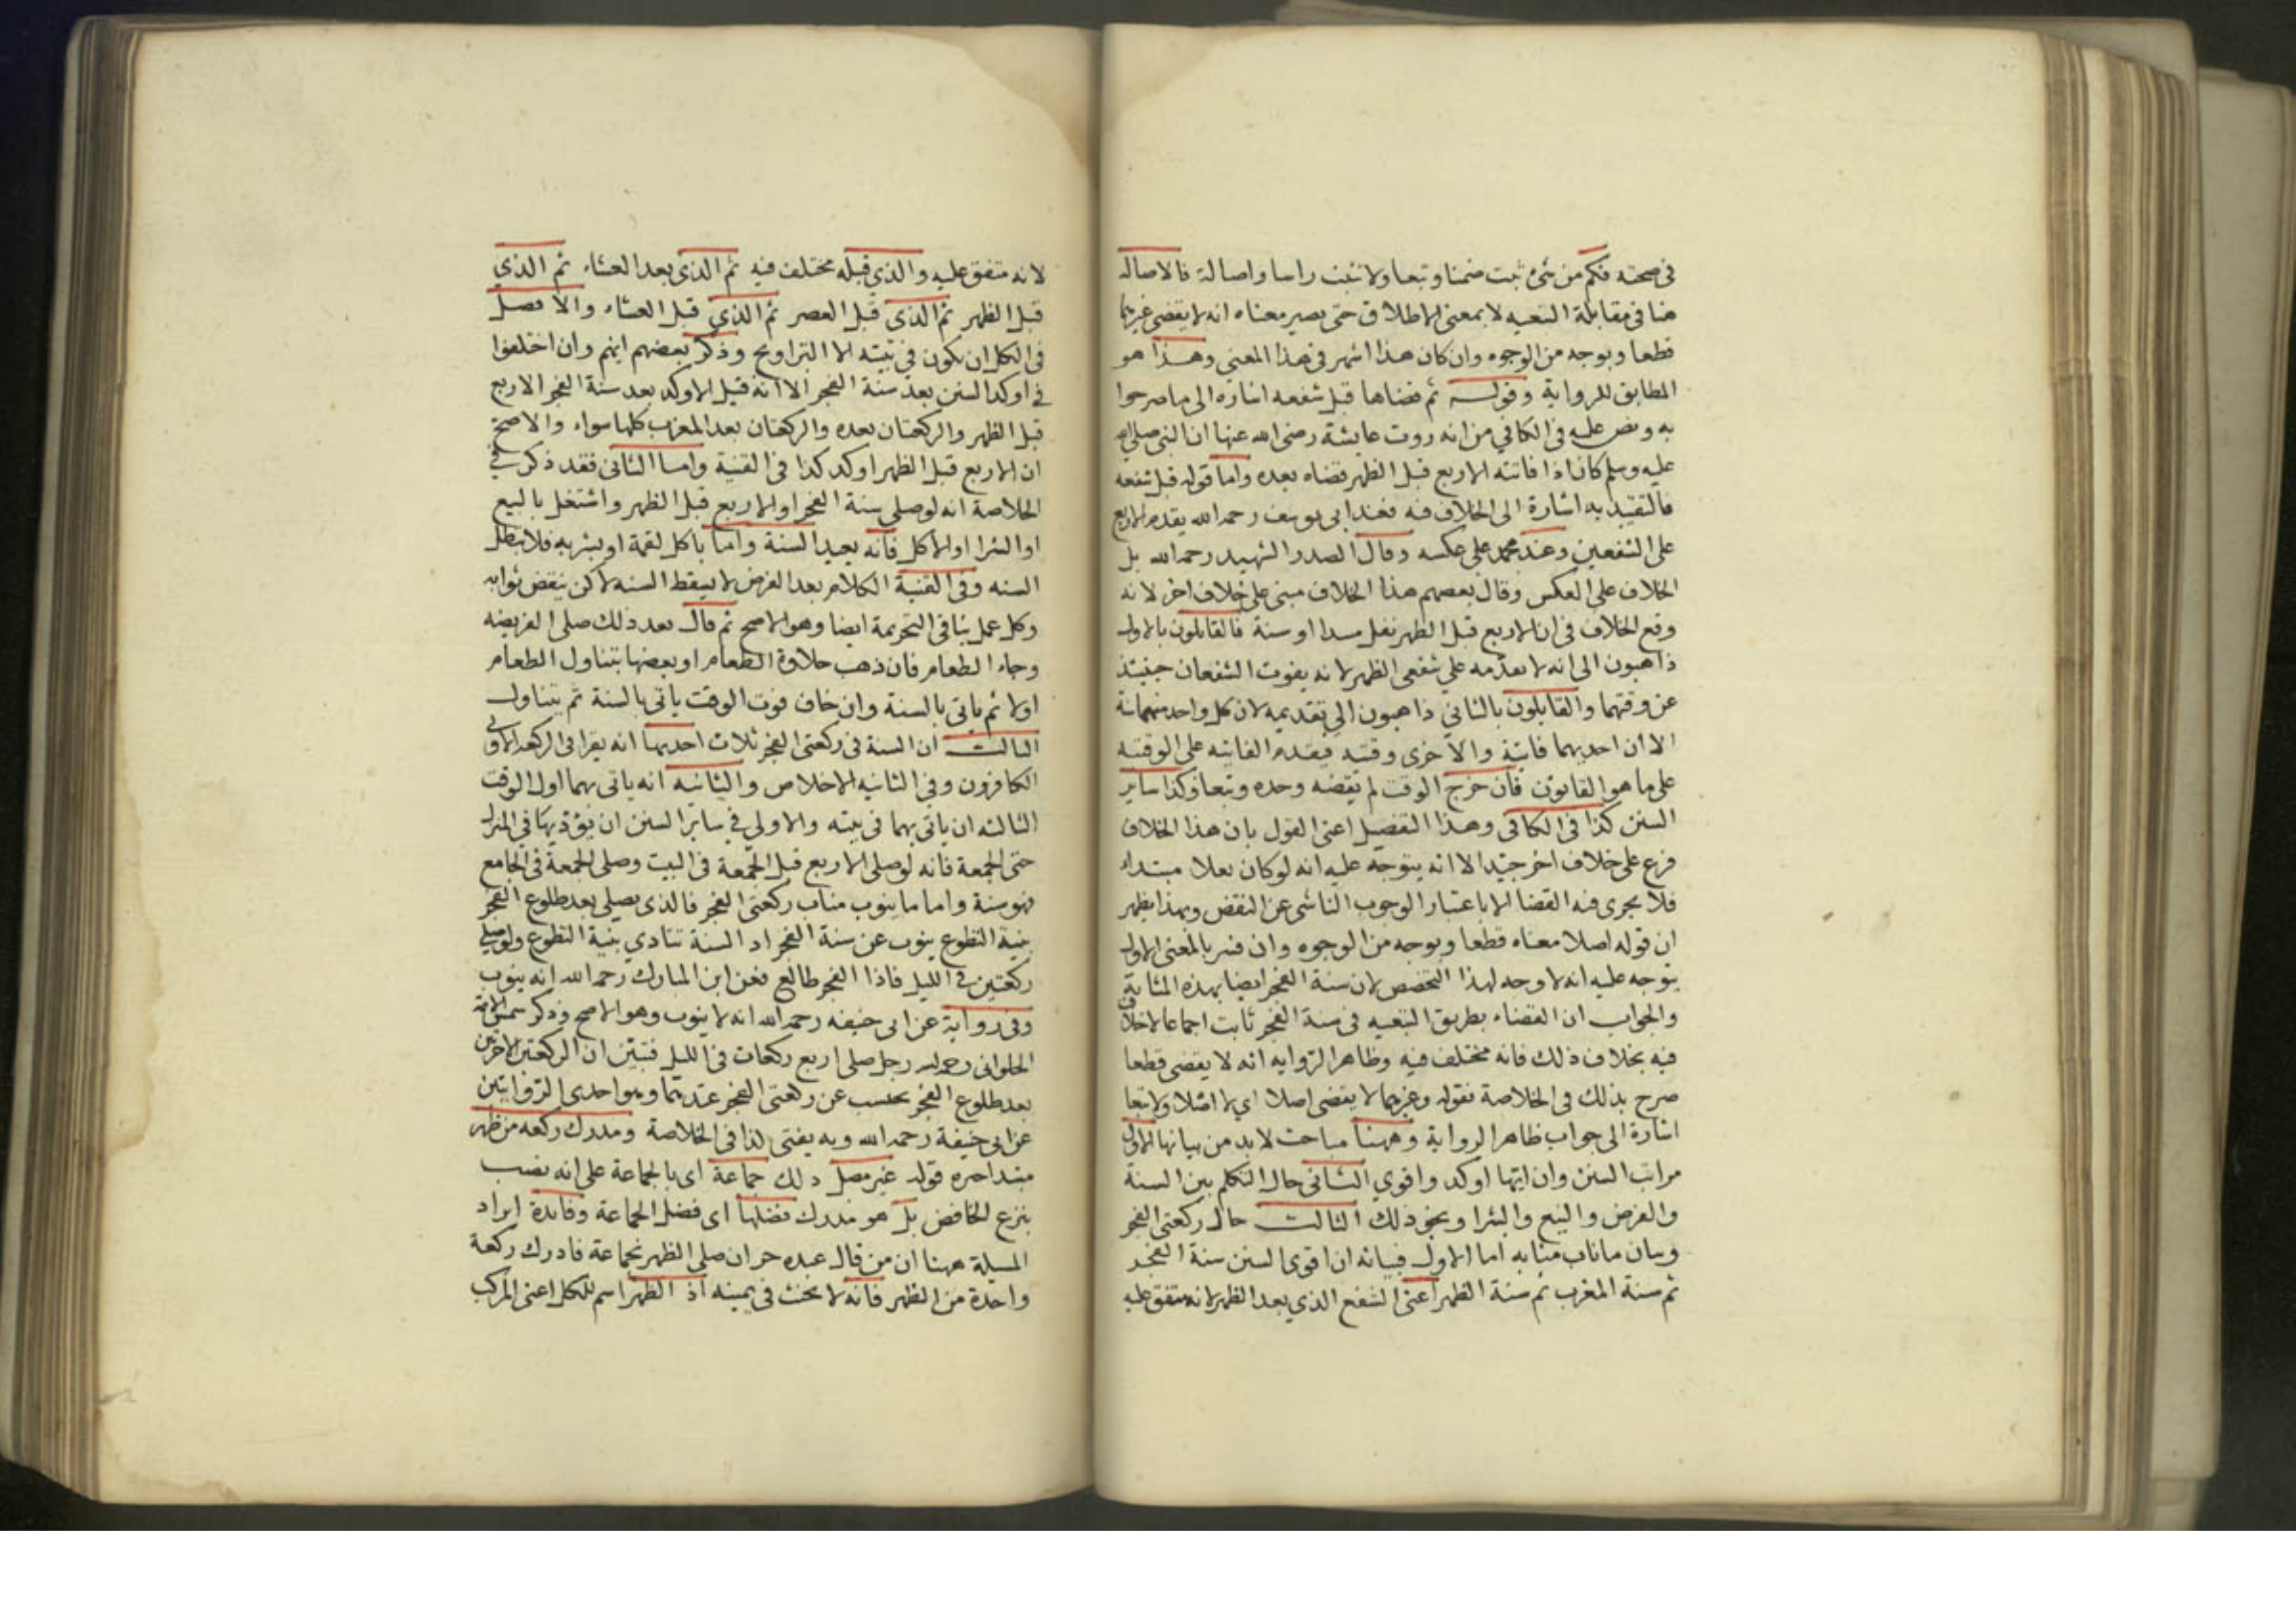 في صحته فكم من شئ ثبت ضمنا وتبعا ولا تثبت راسا واصالة فالاصاله
هنا في مقابلة التبعيه لا بمعنى الاطلاق حتى يصير معناه انه لا يقضي غيرها
قطعا وبوجه من الوجوه وان كان هذا اشهر في هذا المعنى وهذا هو
المطابق للرواية وقوله ثم قضاها قبل شفعه اشاره الى ما صرحوا
به ونص عليه في الكافي من انه روت عايشة رضى الله عنها ان النبي صلى الله
عليه وسلم كان اذا فاتته الاربع قبل الظهر قضاه بعده واما قوله قبل شفعه
فالتقييد به اشارة الى الخلاف فيه فعند ابى يوسف رحمه الله يقدم الاربع
على الشفعين وعند محمد على عكسه وقال الصدر الشهيد رحمه الله بل
الخلاف على العكس وقال بعضهم هذا الخلاف مبنى على خلاف اخر لانه
وقع الخلاف في ان الاربع قبل الظهر نفل مبتدا او سنة فالقايلون بالاول
ذاهبون الى انه لا يقدمه على شفعى الظهر لانه يفوت الشفعان حينيذ
عن وقتهما والقايلون بالثاني ذاهبون الى تقديمه لان كل واحد منهما سنة
الا ان احديهما فايتة والاخرى وقتيه فيقدم الفايته على الوقتيه
على ما هو القانون فان خرج الوقت لم يقضه وحده وتبعا وكذا ساير
السنن كذا في الكافي وهذا التفصيل اعنى القول بان هذا الخلاف
فرع على خلاف اخر جيد الا انه يتوجه عليه انه لو كان نفلا مبتداء
فلا يجرى فيه القضا الا باعتبار الوجوب الناشى عن النقض وبهذا يظهر
ان قوله اصلا معناه قطعا وبوجه من الوجوه وان فسر بالمعنى الاول
يتوجه عليه انه لا وجه لهذا التخصص لان سنة الفجر ايضا بهذه المثابة
والجواب ان القضاء بطريق التبعيه في سنة الفجر ثابت اجماعا لا خلاف
فيه بخلاف ذلك فانه مختلف فيه وظاهر الروايه انه لا يقضى قطعا
صرح بذلك في الخلاصة فقوله وغيرهما لا يقضى اصلا اي لا اصلا ولا تبعا
اشارة الى جواب ظاهر الرواية وههنا مباحث لا بد من بيانها الاول
مراتب السنن وان ايتها اوكد واقوي الثاني حال التكلم بين السنة
والفرض والبيع والشرا ونحو ذلك الثالث حال ركعتى الفجر
وبيان ما ناب منابه اما الاول فبيانه ان اقوى السنن سنة الفجر
ثم سنة المغرب ثم سنة الظهر اعنى الشفع الذي بعد الظهر لانه متفق عليه
لانه متفق عليه والذي قبله مختلف فيه ثم الذى بعد العشاء ثم الذي
قبل الظهر ثم الذى قبل العصر ثم الذي قبل العشاء والافضل
في الكل ان يكون في بيته الا التراويح وذكر بعضهم انهم وان اختلفوا
في اوكد السنن بعد سنة الفجر الا انه قيل الاوكد بعد سنة الفجر الاربع
قبل الظهر والركعتان بعده والركعتان بعد المغرب كلها سواء والاصح
ان الاربع قبل الظهر اوكد كذا في القنية واما الثانى فقد ذكر في
الخلاصة انه لو صلى سنة الفجر او الاربع قبل الظهر واشتغل بالبيع
او الشرا او الاكل فانه يعيد السنة واما باكل لقمة او بشربه فلا تبطل
السنه وفي القنية الكلام بعد الفرض لا يسقط السنه لاكن ينقض ثوابه
وكل عمل ينافي التحريمة ايضا وهو الاصح ثم قال بعد ذلك صلى الفريضه
وجاء الطعام فان ذهب حلاوة الطعام او بعضها يتناول الطعام
اولا ثم ياتى بالسنة وان خاف فوت الوقت ياتى بالسنة ثم يتناول
الثالث ان السنة في ركعتى الفجر ثلاث احديها انه يقرا في الركعه الاولى
الكافرون وفي الثانيه الاخلاص والثانيه انه ياتى بهما اول الوقت
الثالثه ان ياتى بهما في بيته والاولى في ساير السنن ان يؤديها في المنزل
حتى الجمعة فانه لو صلى الاربع قبل الجمعة في البيت وصلى الجمعة في الجامع
فهو سنة واما ما ينوب مناب ركعتى الفجر فالذى يصلى بعد طلوع الفجر
بنية التطوع ينوب عن سنة الفجر اذ السنة تتادي بنية التطوع ولو صلى
ركعتين في الليل فاذا الفجر طالع فعن ابن المبارك رحمه الله انه ينوب
وفي رواية عن ابى حنيفه رحمه الله انه لا ينوب وهو الاصح وذكر شمس الائمة
الحلوانى رحمه الله رجل صلى اربع ركعات في الليل فتبين ان الركعتين الاخرتين
بعد طلوع الفجر تحتسب عن ركعتى الفجر عندهما وهو احدى الروايتين
عن ابى حنيفة رحمه الله وبه يفتى كذا في الخلاصة ومدرك ركعه من ظهر
مبتدا خبره قوله غير مصل ذلك جماعة اى بالجماعة على انه نصب
بنزع الخافض بل هو مدرك فضلها اى فضل الجماعة وفايدة ايراد
المسيلة ههنا ان من قال عبده حر ان صلى الظهر بجماعة فادرك ركعة
واحدة من الظهر فانه لا يحنث في يمينه اذ الظهر اسم للكل اعنى المركب